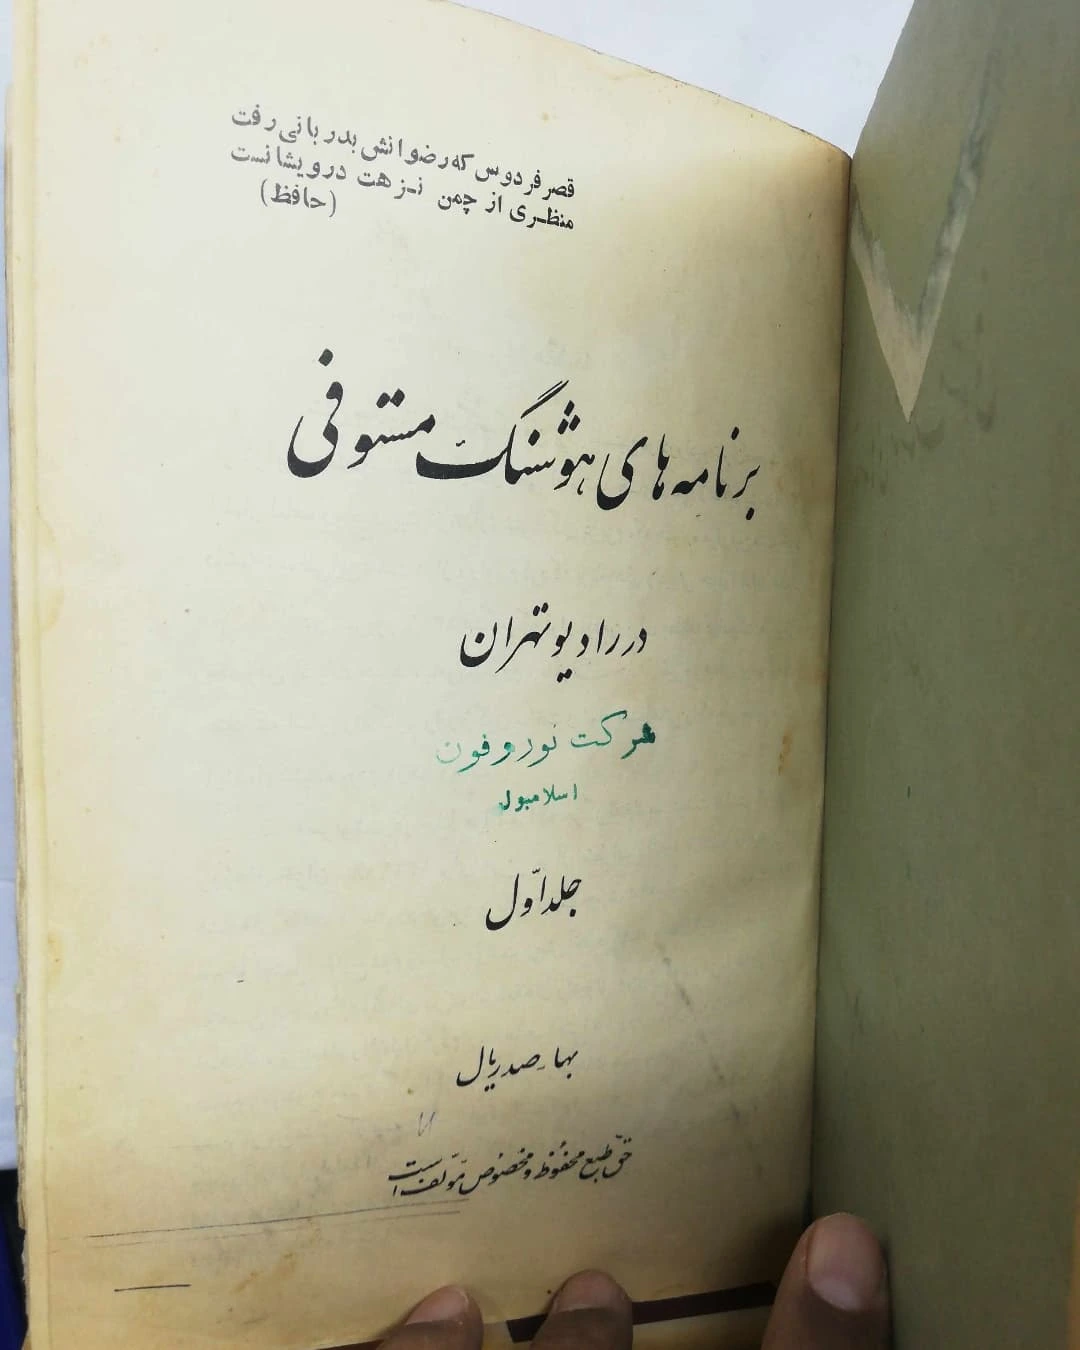 قصر فردوس که رضوانش بدربانی رفت
منظری از چمن نزهت درویشانست
(حافظ)
برنامه های هوشنگ مستوفی
در رادیو تهران
شرکت نوروفون
اسلامبول
جلد اوّل
بهاء صد ریال
حقّ طبع محفوظ و مخصوص مؤلّف است